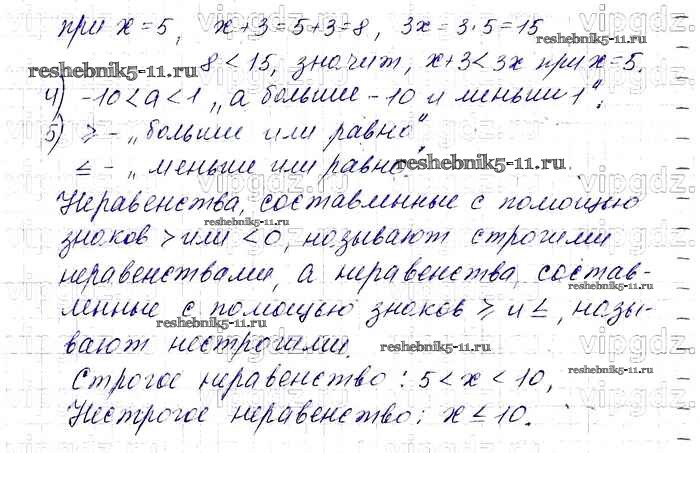 при x=5, x+3=5+3=8, 3x=3·5=15
8<15, значит, x+3<3x при x=5.
4) -10<a<1 „а больше -10 и меньши 1“.
5) ⩾ - „больше или равно“
≤ - „меньше или равно“
Неравенства, составленные с помощью
знаков > или <0, называют строгими
неравенствами, а неравенства, состав-
ленные с помощью знаков ⩾ и ≤, назы-
вают нестрогими.
Строгое неравенство: 5<x<10,
Нестрогое неравенство: x≤10.
reshebnik5-11.ru
reshebnik5-11.ru
reshebnik5-11.ru
reshebnik5-11.ru
reshebnik5-11.ru
reshebnik5-11.ru
reshebnik5-11.ru
reshebnik5-11.ru
reshebnik5-11.ru